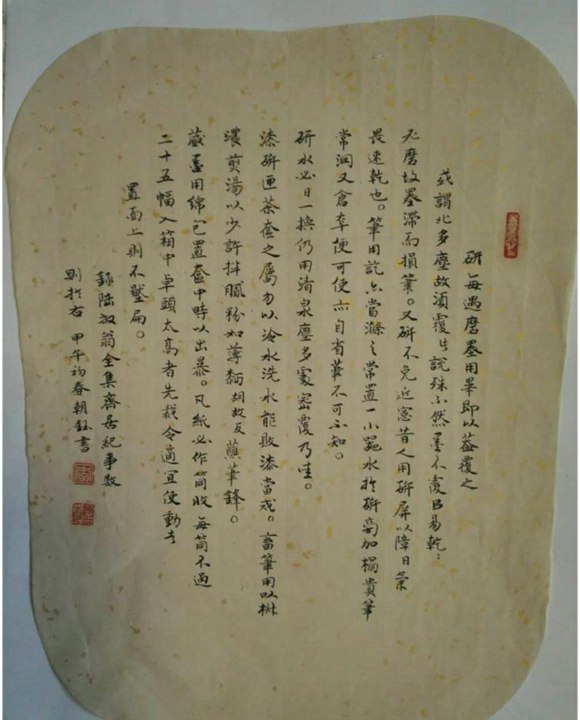 研每遇磨墨用畢即以蓋覆之
或謂北多塵故須覆此說殊不然墨不覆自易乾
磨故墨滯而損筆。又研不免近窗昔人用研屏以障日景
畏速乾也。筆用訖亦當滌之常置一小器水於研旁加榻貴筆
常潤又倉卒便可使亦自省筆不可不知。
研水必日一換仍用清泉塵多處密覆乃佳。
漆研匣茶奩之屬勿以冷水洗水能敗漆當戒。畜筆用以椒
濃煎湯以少許拌膩粉如薄糊故反蘸筆鋒。
藏墨用綿包置奩中時以出暴。凡紙必作筒收每筒不過
二十五幅入箱中卓頭太高者先裁令適宜使動
置面上則不壓扁。
錄陸放翁全集齋居紀事數
則於右 甲午初春朝鈺書